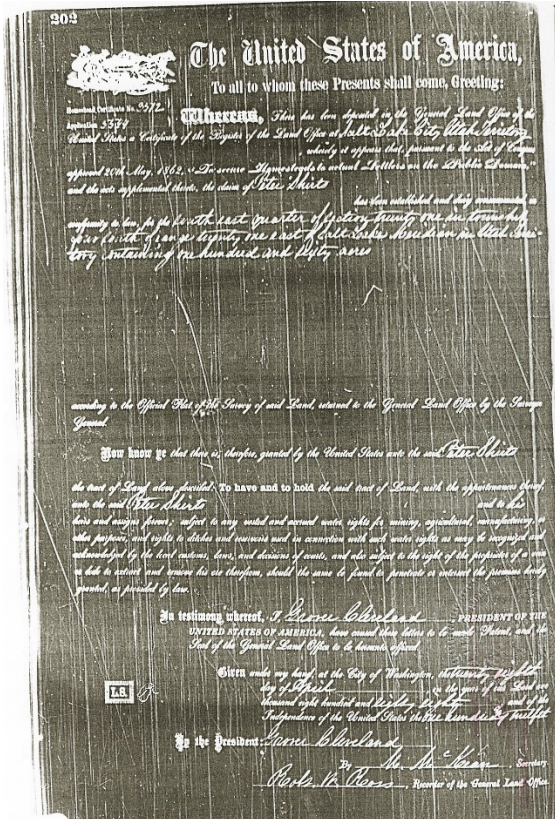 202
The United States of America,
To all to whom these Presents shall come, Greeting:
Homestead Certificate No. 3572
Application 5374
Whereas, There has been deposited in the General Land Office of the
United States a Certificate of the Register of the Land Office at Salt Lake City Utah Territory
whereby it appears that, pursuant to the Act of Congress
approved 20th May, 1862, "To secure Homesteads to actual Settlers on the Public Domain,"
and the acts supplemental thereto, the claim of Peter Shirts
has been established and duly consummated, in
conformity to law, for the South east quarter of Section twenty one in township
South of range twenty one east of Salt Lake Meridian in Utah Terri-
tory containing one hundred and sixty acres
according to the Official Plat of the Survey of said Land, returned to the General Land Office by the Surveyor
General.
Now know ye that there is, therefore, granted by the United States unto the said Peter Shirts
the tract of Land above described: To have and to hold the said tract of Land, with the appurtenances thereof,
unto the said Peter Shirts and to his
heirs and assigns forever; subject to any vested and accrued water rights for mining, agricultural, manufacturing, or
other purposes, and rights to ditches and reservoirs used in connection with such water rights as may be recognized and
acknowledged by the local customs, laws, and decisions of courts, and also subject to the right of the proprietor of a vein
or lode to extract and remove his ore therefrom, should the same be found to penetrate or intersect the premises hereby
granted, as provided by law.
In testimony whereof, I, Grover Cleveland, PRESIDENT OF THE
UNITED STATES OF AMERICA, have caused these letters to be made Patent, and the
Seal of the General Land Office to be hereunto affixed.
Given under my hand, at the City of Washington, the twenty eighth
day of April, in the year of the Lord one
L.S.
thousand eight hundred and eighty eighty, and of the
Independence of the United States the one hundred twelfth
By the President: Grover Cleveland
By M. McKean, Secretary.
Robt W. Ross, Recorder of the General Land Office.